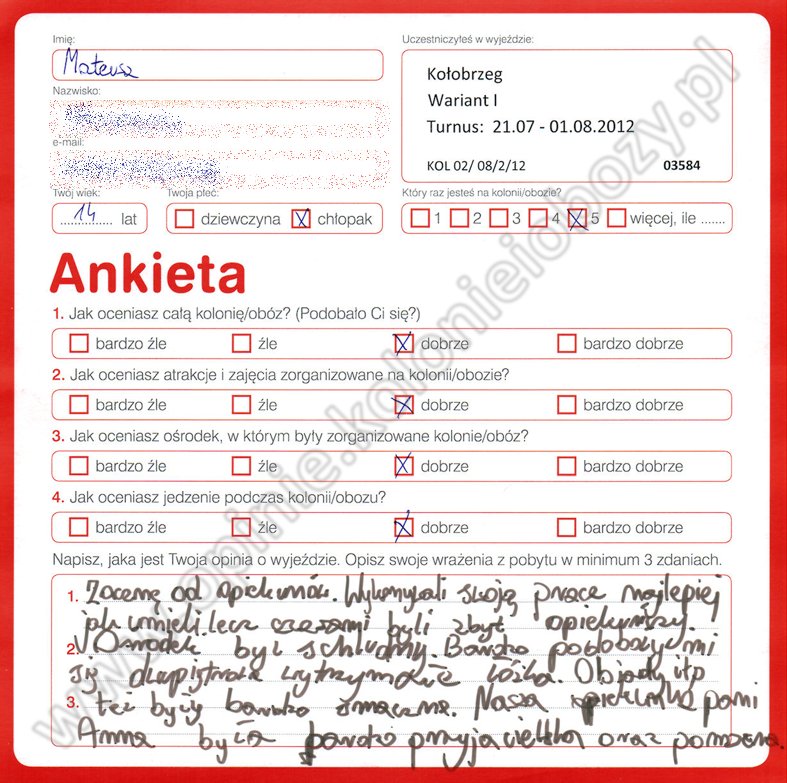 Imię:
Mateusz
Uczestniczyłeś w wyjeździe:
Kołobrzeg
Wariant I
Turnus: 21.07 - 01.08.2012
KOL 02/ 08/2/12 03584
Nazwisko:
e-mail:
Twój wiek: Twoja płeć: Który raz jesteś na kolonii/obozie?
14 lat dziewczyna chłopak 1 2 3 4 5 więcej, ile .......
Ankieta
1. Jak oceniasz całą kolonię/obóz? (Podobało Ci się?)
bardzo źle źle dobrze bardzo dobrze
2. Jak oceniasz atrakcje i zajęcia zorganizowane na kolonii/obozie?
bardzo źle źle dobrze bardzo dobrze
3. Jak oceniasz ośrodek, w którym były zorganizowane kolonie/obóz?
bardzo źle źle dobrze bardzo dobrze
4. Jak oceniasz jedzenie podczas kolonii/obozu?
bardzo źle źle dobrze bardzo dobrze
Napisz, jaka jest Twoja opinia o wyjeździe. Opisz swoje wrażenia z pobytu w minimum 3 zdaniach.
1. Zacznę od opiekunów. Wykonywali swoją prace najlepiej
jak umieli. lecz czasami byli zbyt opiekuńczy.
2. Ośrodek był schludny. Bardzo podobały mi
się dwupiętrowe łóżka. Obiady itp
3. też były bardzo smaczne. Nasza opiekunka pani
Anna była bardzo przyjacielska oraz pomocna.
www.opinie.kolonieiobozy.pl